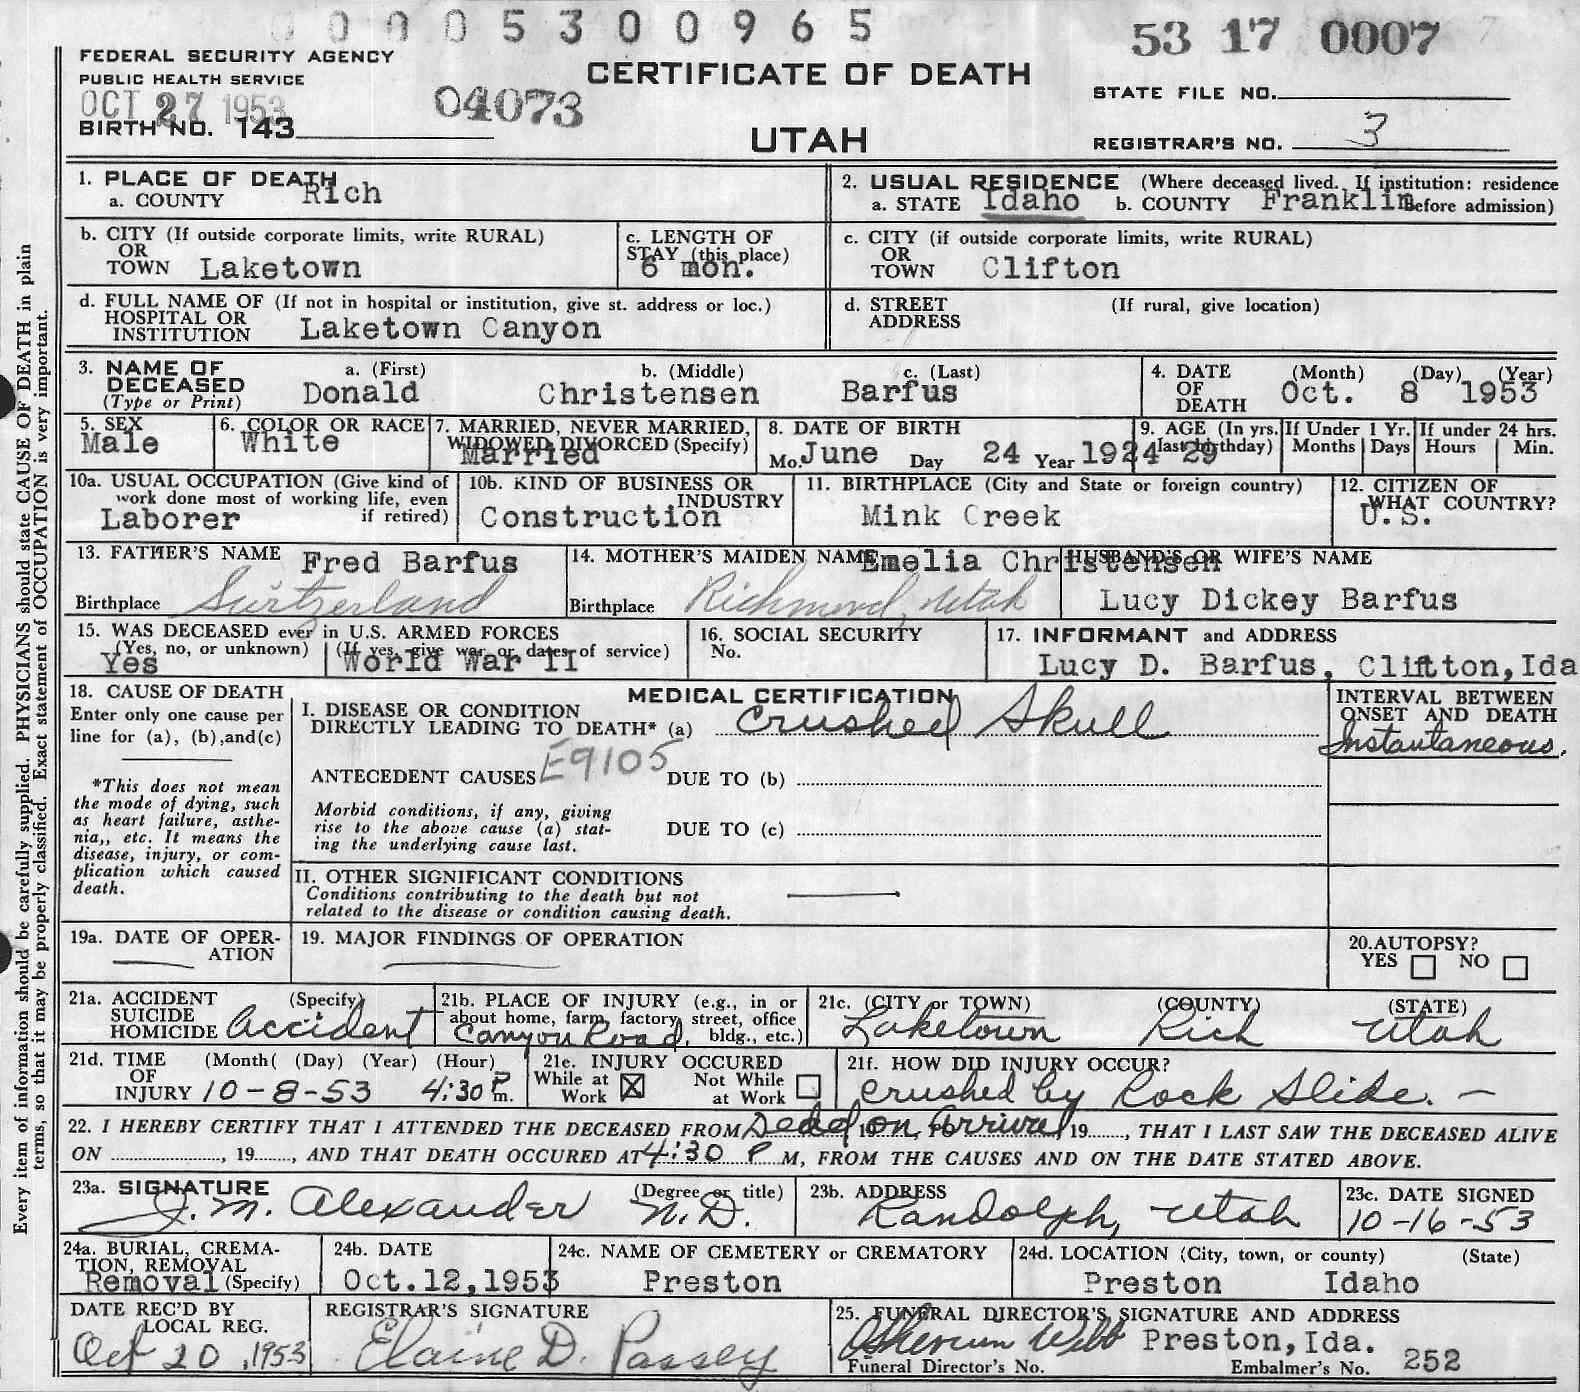 0 0 0 5 3 0 0 9 6 5
53 17 0007
FEDERAL SECURITY AGENCY
PUBLIC HEALTH SERVICE
OCT 27 1953
BIRTH NO. 143
04073
CERTIFICATE OF DEATH
UTAH
STATE FILE NO.
REGISTRAR'S NO. 3
1. PLACE OF DEATH
a. COUNTY Rich
2. USUAL RESIDENCE (Where deceased lived. If institution: residence before admission)
a. STATE Idaho b. COUNTY Franklin
b. CITY (If outside corporate limits, write RURAL)
OR
TOWN Laketown
c. LENGTH OF
STAY (this place)
6 mon.
c. CITY (if outside corporate limits, write RURAL)
OR
TOWN Clifton
d. FULL NAME OF (If not in hospital or institution, give st. address or loc.)
HOSPITAL OR
INSTITUTION Laketown Canyon
d. STREET (If rural, give location)
ADDRESS
3. NAME OF DECEASED (Type or Print)
a. (First) b. (Middle) c. (Last)
Donald Christensen Barfus
4. DATE OF DEATH (Month) (Day) (Year)
Oct. 8 1953
5. SEX
Male
6. COLOR OR RACE
White
7. MARRIED, NEVER MARRIED,
WIDOWED DIVORCED (Specify)
Married
8. DATE OF BIRTH
Mo. June Day 24 Year 1924
9. AGE (In yrs. last birthday) 29
If Under 1 Yr. Months Days
If under 24 hrs. Hours Min.
10a. USUAL OCCUPATION (Give kind of
work done most of working life, even
if retired)
Laborer
10b. KIND OF BUSINESS OR
INDUSTRY
Construction
11. BIRTHPLACE (City and State or foreign country)
Mink Creek
12. CITIZEN OF
WHAT COUNTRY?
U.S.
13. FATHER'S NAME Fred Barfus
Birthplace Switzerland
14. MOTHER'S MAIDEN NAME Emelia Christensen
Birthplace Richmond, Utah
HUSBAND'S OR WIFE'S NAME
Lucy Dickey Barfus
15. WAS DECEASED ever in U.S. ARMED FORCES
(Yes, no, or unknown) (If yes, give war or dates of service)
Yes World War II
16. SOCIAL SECURITY
No.
17. INFORMANT and ADDRESS
Lucy D. Barfus, Clifton, Ida
18. CAUSE OF DEATH
Enter only one cause per
line for (a), (b),and(c)
*This does not mean
the mode of dying, such
as heart failure, asthe-
nia,, etc. It means the
disease, injury, or com-
plication which caused
death.
MEDICAL CERTIFICATION
I. DISEASE OR CONDITION
DIRECTLY LEADING TO DEATH* (a) Crushed Skull
ANTECEDENT CAUSES E9105 DUE TO (b)
Morbid conditions, if any, giving
rise to the above cause (a) stat-
ing the underlying cause last.
DUE TO (c)
II. OTHER SIGNIFICANT CONDITIONS
Conditions contributing to the death but not
related to the disease or condition causing death.
INTERVAL BETWEEN
ONSET AND DEATH
Instantaneous.
19a. DATE OF OPER-
ATION
19. MAJOR FINDINGS OF OPERATION
20.AUTOPSY?
YES NO
21a. ACCIDENT (Specify)
SUICIDE
HOMICIDE Accident
21b. PLACE OF INJURY (e.g., in or
about home, farm, factory, street, office
bldg., etc.)
Canyon Road.
21c. (CITY or TOWN) (COUNTY) (STATE)
Laketown Rich Utah
21d. TIME (Month( (Day) (Year) (Hour)
OF
INJURY 10-8-53 4:30 P m.
21e. INJURY OCCURED
While at Work X Not While at Work
21f. HOW DID INJURY OCCUR?
Crushed by Rock Slide. —
22. I HEREBY CERTIFY THAT I ATTENDED THE DECEASED FROM Dead on Arrival 19......, THAT I LAST SAW THE DECEASED ALIVE
ON ................, 19......, AND THAT DEATH OCCURED AT 4:30 P M, FROM THE CAUSES AND ON THE DATE STATED ABOVE.
23a. SIGNATURE (Degree or title)
J. M. Alexander M.D.
23b. ADDRESS
Randolph, Utah
23c. DATE SIGNED
10-16-53
24a. BURIAL, CREMA-
TION, REMOVAL
Removal (Specify)
24b. DATE
Oct.12,1953
24c. NAME OF CEMETERY or CREMATORY
Preston
24d. LOCATION (City, town, or county) (State)
Preston Idaho
DATE REC'D BY
LOCAL REG.
Oct 20, 1953
REGISTRAR'S SIGNATURE
Elaine D. Passey
25. FUNERAL DIRECTOR'S SIGNATURE AND ADDRESS
Webb Preston, Ida.
Funeral Director's No. Embalmer's No. 252
Every item of information should be carefully supplied. PHYSICIANS should state CAUSE OF DEATH in plain
terms, so that it may be properly classified. Exact statement of OCCUPATION is very important.